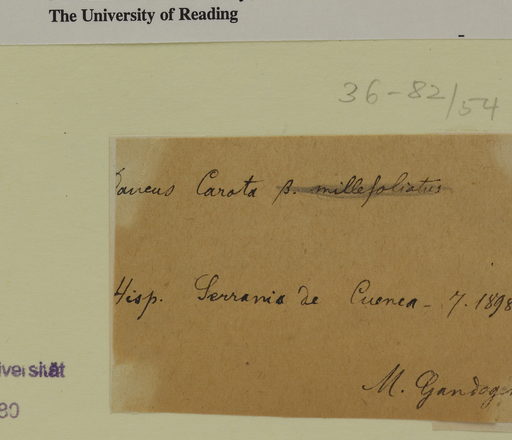 The University of Reading
36-82/54
Daucus Carota β. millefoliatus
Hisp. Serrania de Cuenca - 7. 1898
M. Gandoger
versität
80